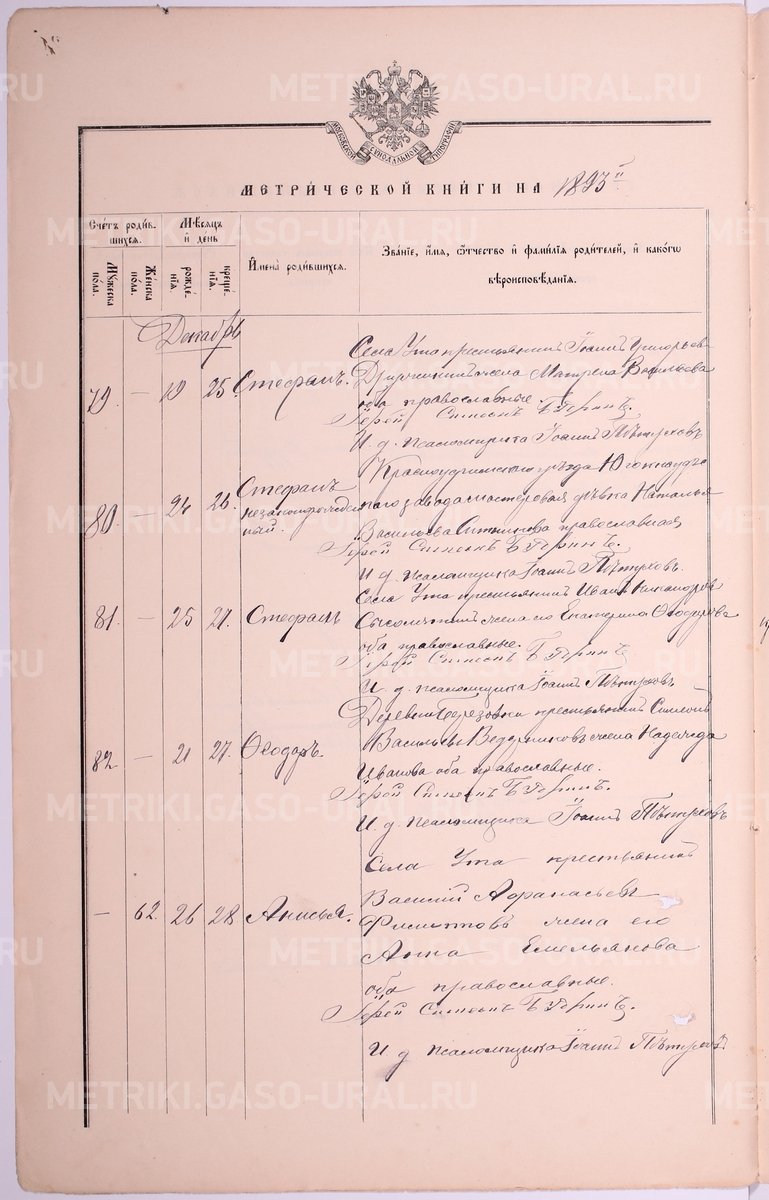 МОСКОВСКОЙ СѴНОДАЛЬНОЙ ТИПОГРАФІИ
МЕТРИ́ЧЕСКОЙ КНИ́ГИ НА 1893й
Сче́тъ роди́в-
шихсѧ.
Мꙋ́жеска
по́ла.
Же́нска
по́ла.
Мѣ́сѧцъ
и҆ де́нь
рожде́-
нїѧ.
креще́-
нїѧ.
И҆мена̀ роди́вшихсѧ.
Зва́нїе, и҆́мѧ, ѻ҆́тчество и҆ фами́лїѧ роди́телей, и҆ како́гѡ
вѣроисповѣ́данїѧ.
Декабрь
79. — 19 25 Стефанъ.
Села Ута крестьянинъ Іоаннъ Григорьевъ
жена Матрена Васильева
оба православные.
Іерей Симеонъ
И. д. псаломщика Іоаннъ Пѣтуховъ
80. — 24 26. Стефанъ
незаконнорожден
ный.
Красноуфимского уѣзда
заго завода мастеровая дѣвка Наталья
Васильева Ситникова православная
Іерей Симеонъ
И. д. псаломщика Іоаннъ Пѣтуховъ.
81. — 25 27. Стефанъ
Села Ута крестьянинъ Иванъ Никаноров
жена его Екатерина Ѳеодорова
оба православные.
Іерей Симеонъ
И. д. псаломщика Іоаннъ Пѣтуховъ
82. — 21 27. Ѳеодоръ.
Деревни Березовки крестьянинъ Симеонъ
Васильевъ Ведерниковъ жена Надежда
Иванова оба православные.
Іерей Симеонъ
И. д. псаломщика Іоаннъ Пѣтуховъ
— 62. 26 28 Анисья.
Села Ута крестьянинъ
Василій Афанасьевъ
Филиповъ жена его
Анна Емельянова
оба православные.
Іерей Симеонъ
И. д псаломщика Іоаннъ Пѣтуховъ
METRIKI.GASO-URAL.RU